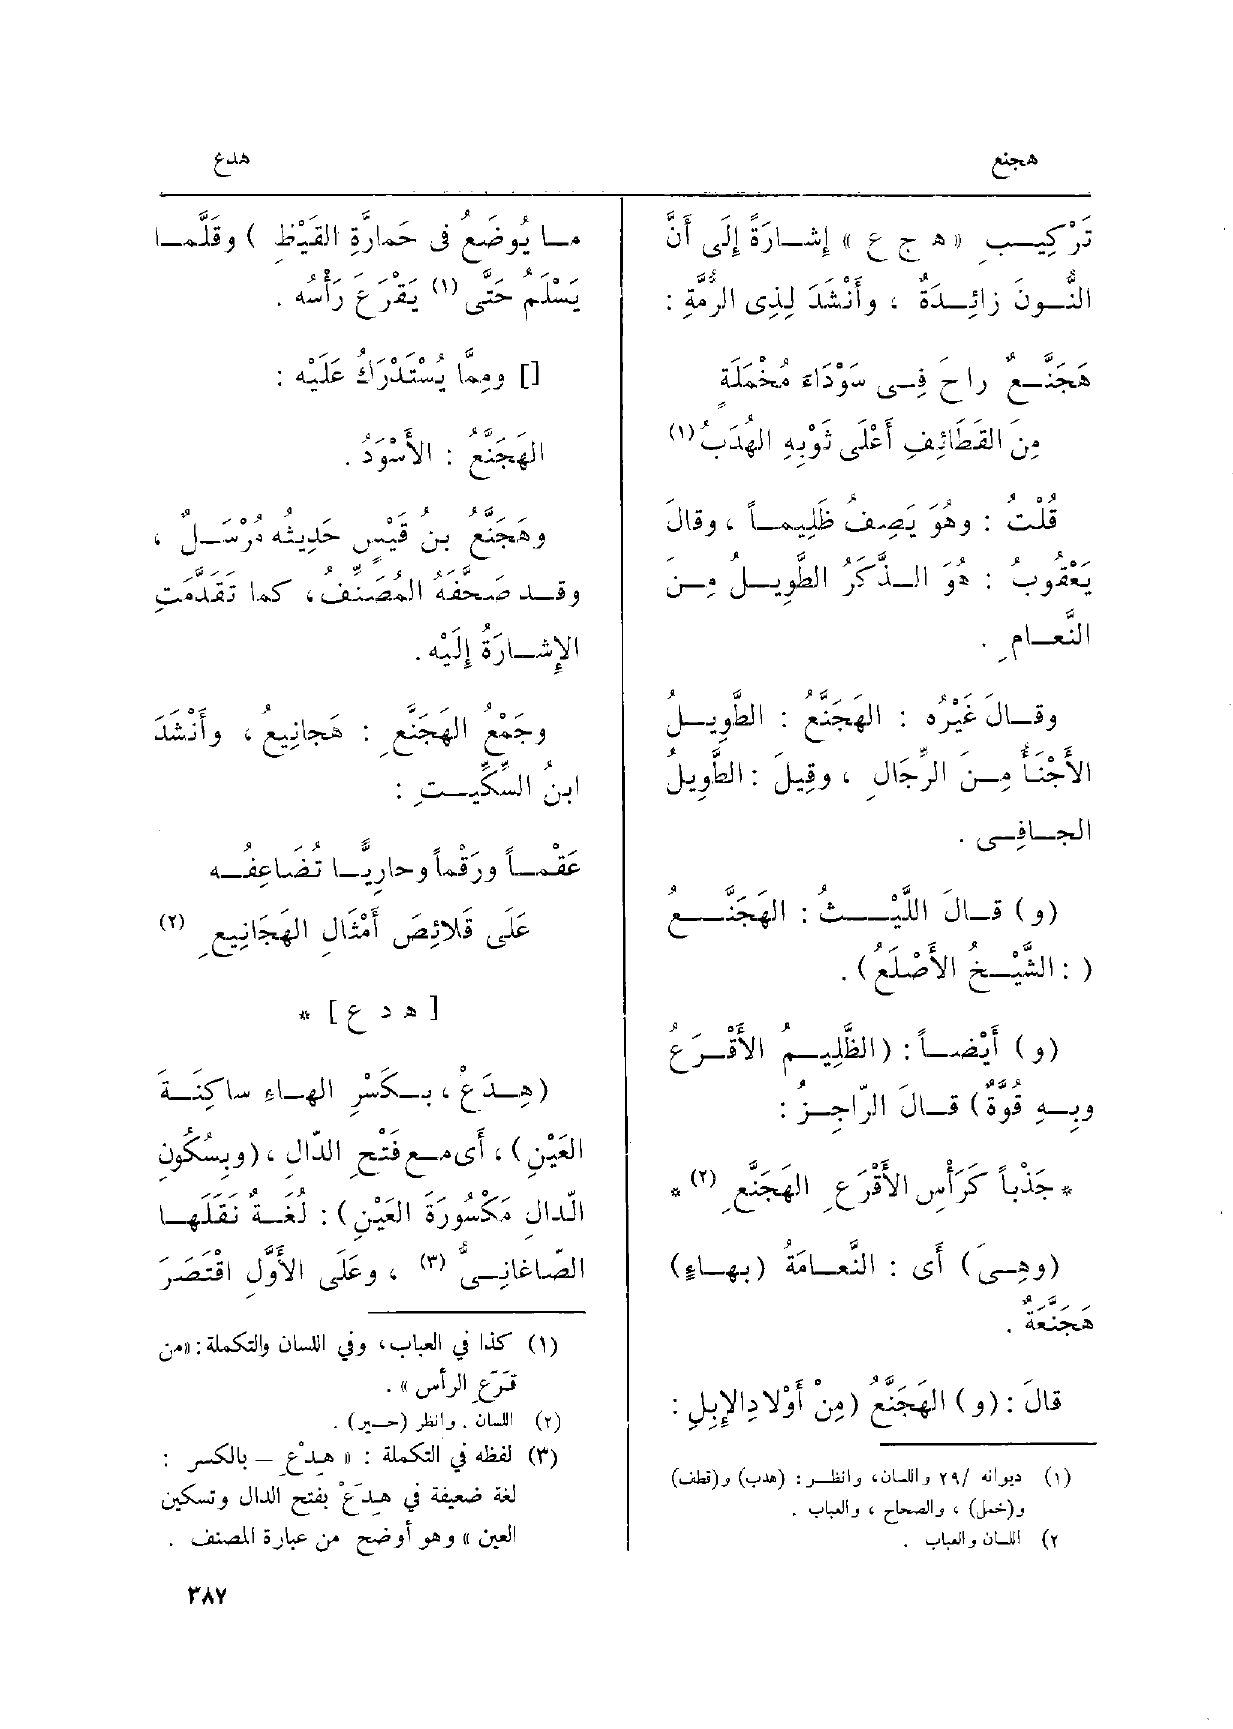 هجنع
هدع
تَرْكِيــبِ «ه ج ع» إِشــارَةً إِلَى أَنَّ
النُّــونَ زائِــدَةٌ ، وأَنْشَدَ لِذِى الرُّمَّةِ :
هَجَنَّــعٌ راحَ فِــى سَوْدَاءَ مُخْمَلَةٍ
مِنَ القَطَائِفِ أَعْلَى ثَوْبِهِ الهُدَبُ (١)
قُلْتُ : وهُوَ يَصِفُ ظَلِيمــاً ، وقالَ
يَعْقُوبُ : هُوَ الــذَّكَرُ الطَّوِيــلُ مِــنَ
النَّعــامِ .
وقــالَ غَيْرُه : الهَجَنَّعُ : الطَّوِيــلُ
الأَجْنَأُ مِــنَ الرِّجَالِ ، وقِيلَ : الطَّوِيلُ
الجــافِــى .
(و) قــالَ اللَّيْــثُ : الهَجَنَّــعُ
( : الشَّيْــخُ الأَصْلَعُ) .
(و) أَيْضــاً : (الظَّلِيــمُ الأَقْــرَعُ
وبِــهِ قُوَّةٌ) قــالَ الرّاجِــزُ :
* جَذْباً كَرَأْسِ الأَقْرَعِ الهَجَنَّعِ (٢) *
(وهِــىَ) أى : النَّعــامَةُ (بهــاءٍ)
هَجَنَّعَةٌ .
قالَ : (و) الهَجَنَّعُ (مِنْ أَوْلادِ الإِبِلِ :
(١) ديوانه /٢٩ واللسان، وانظــر : (هدب) و(قطف)
و(خمل) ، والصحاح ، والعباب .
٢) اللسان والعباب .
مــا يُوضَعُ فى حَمارَّةِ القَيْظِ ) وقَلَّمــا
يَسْلَمُ حَتَّى (١) يَقْرَعَ رَأْسُه .
[] ومِمَّا يُسْتَدْرَكُ عَلَيْه :
الهَجَنَّعُ : الأَسْوَدُ .
وهَجَنَّعُ بنُ قَيْسٍ حَدِيثُه مُرْسَــلٌ ،
وقــد صَحَّفَهُ المُصَنِّفُ، كما تَقَدَّمَتِ
الإِشــارَةُ إِلَيْه .
وجَمْعُ الهَجَنَّعِ : هَجانِيعُ ، وأَنْشَدَ
ابنُ السِّكِّيــتِ :
عَقْمــاً ورَقْماً وحارِيًّــا تُضَاعِفُــه
عَلَى قَلائِصَ أَمْثَالِ الهَجَانِيعِ (٢)
[ ه د ع ] *
(هِــدَعْ ، بــكَسْرِ الهــاءِ ساكِنَــةَ
العَيْنِ) ، أى مــع فَتْحِ الدّالِ ، (وبِسُكُونِ
الدّالِ مَكْسُورَةَ العَيْنِ) : لُغَــةٌ نَقَلَهــا
الصّاغانِــىُّ (٣) ، وعَلَى الأَوَّلِ اقْتَصَرَ
(١) كذا في العباب، وفي اللسان والتكملة : «من
قَرَعِ الرأس» .
(٢) اللسان . وانظر (حــير) .
(٣) لفظه في التكملة : « هِدْعِ – بالكسر :
لغة ضعيفة في هِدَعْ بفتح الدال وتسكين
العين » وهو أوضح من عبارة المصنف .
٣٨٧